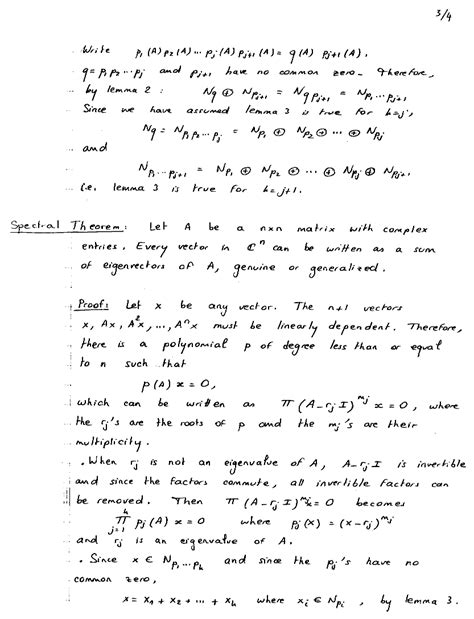 3/4
Write p₁(A)p₂(A)⋯pⱼ(A)pⱼ₊₁(A) = q(A) pⱼ₊₁(A).
q = p₁p₂⋯pⱼ and pⱼ₊₁ have no common zero. Therefore,
by lemma 2 : N_q ⊕ N_{pⱼ₊₁} = N_{q pⱼ₊₁} = N_{p₁⋯pⱼ₊₁}
Since we have assumed lemma 3 is true for k=j,
N_q = N_{p₁p₂⋯pⱼ} = N_{p₁} ⊕ N_{p₂} ⊕ ⋯ ⊕ N_{pⱼ}
and
N_{p₁⋯pⱼ₊₁} = N_{p₁} ⊕ N_{p₂} ⊕ ⋯ ⊕ N_{pⱼ} ⊕ N_{pⱼ₊₁},
i.e. lemma 3 is true for k=j+1.
Spectral Theorem: Let A be a n×n matrix with complex
entries. Every vector in ℂⁿ can be written as a sum
of eigenvectors of A, genuine or generalized.
Proof: Let x be any vector. The n+1 vectors
x, Ax, A²x, ..., Aⁿx must be linearly dependent. Therefore,
there is a polynomial p of degree less than or equal
to n such that
p(A) x = 0,
which can be written as Π (A-rⱼI)^{mⱼ} x = 0, where
the rⱼ's are the roots of p and the mⱼ's are their
multiplicity.
. When rⱼ is not an eigenvalue of A, A-rⱼI is invertible
and since the factors commute, all invertible factors can
be removed. Then Π (A-rⱼI)^{mⱼ}x = 0 becomes
Π_{j=1}^{k} pⱼ(A) x = 0 where pⱼ(x) = (x-rⱼ)^{mⱼ}
and rⱼ is an eigenvalue of A.
. Since x ∈ N_{p₁⋯pₖ} and since the pⱼ's have no
common zero,
x = x₁ + x₂ + ⋯ + xₖ where xᵢ ∈ N_{pᵢ}, by lemma 3.